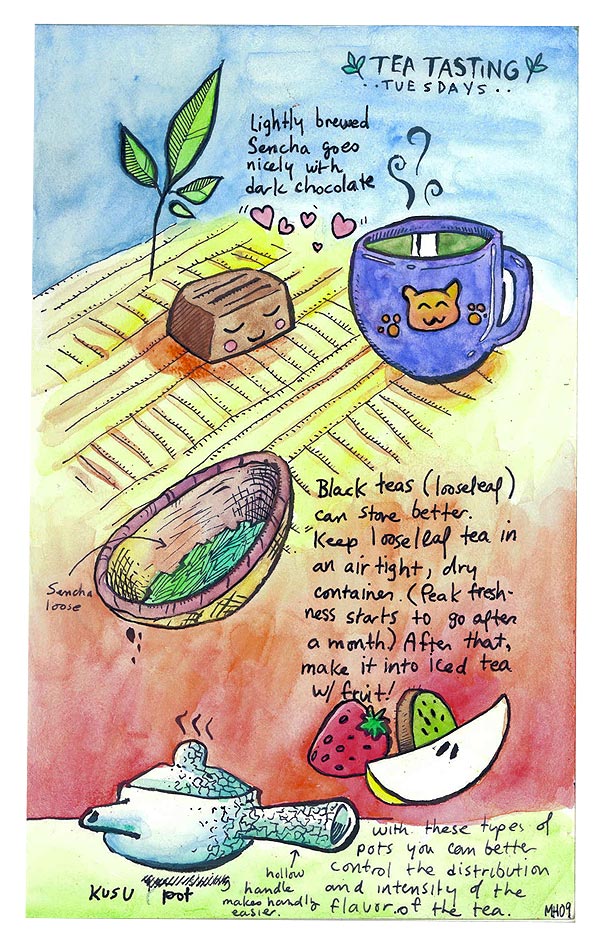 TEA TASTING
··TUESDAYS··
Lightly brewed
Sencha goes
nicely with
dark chocolate
Black teas (looseleaf)
can store better.
Keep looseleaf tea in
an air tight, dry
container. (Peak fresh-
ness starts to go after
a month.) After that,
make it into iced tea
w/ fruit!
Sencha
loose
with these types of
pots you can better
control the distribution
and intensity of the
flavor of the tea.
hollow
handle
makes handly
easier.
KUSU pot
MH09